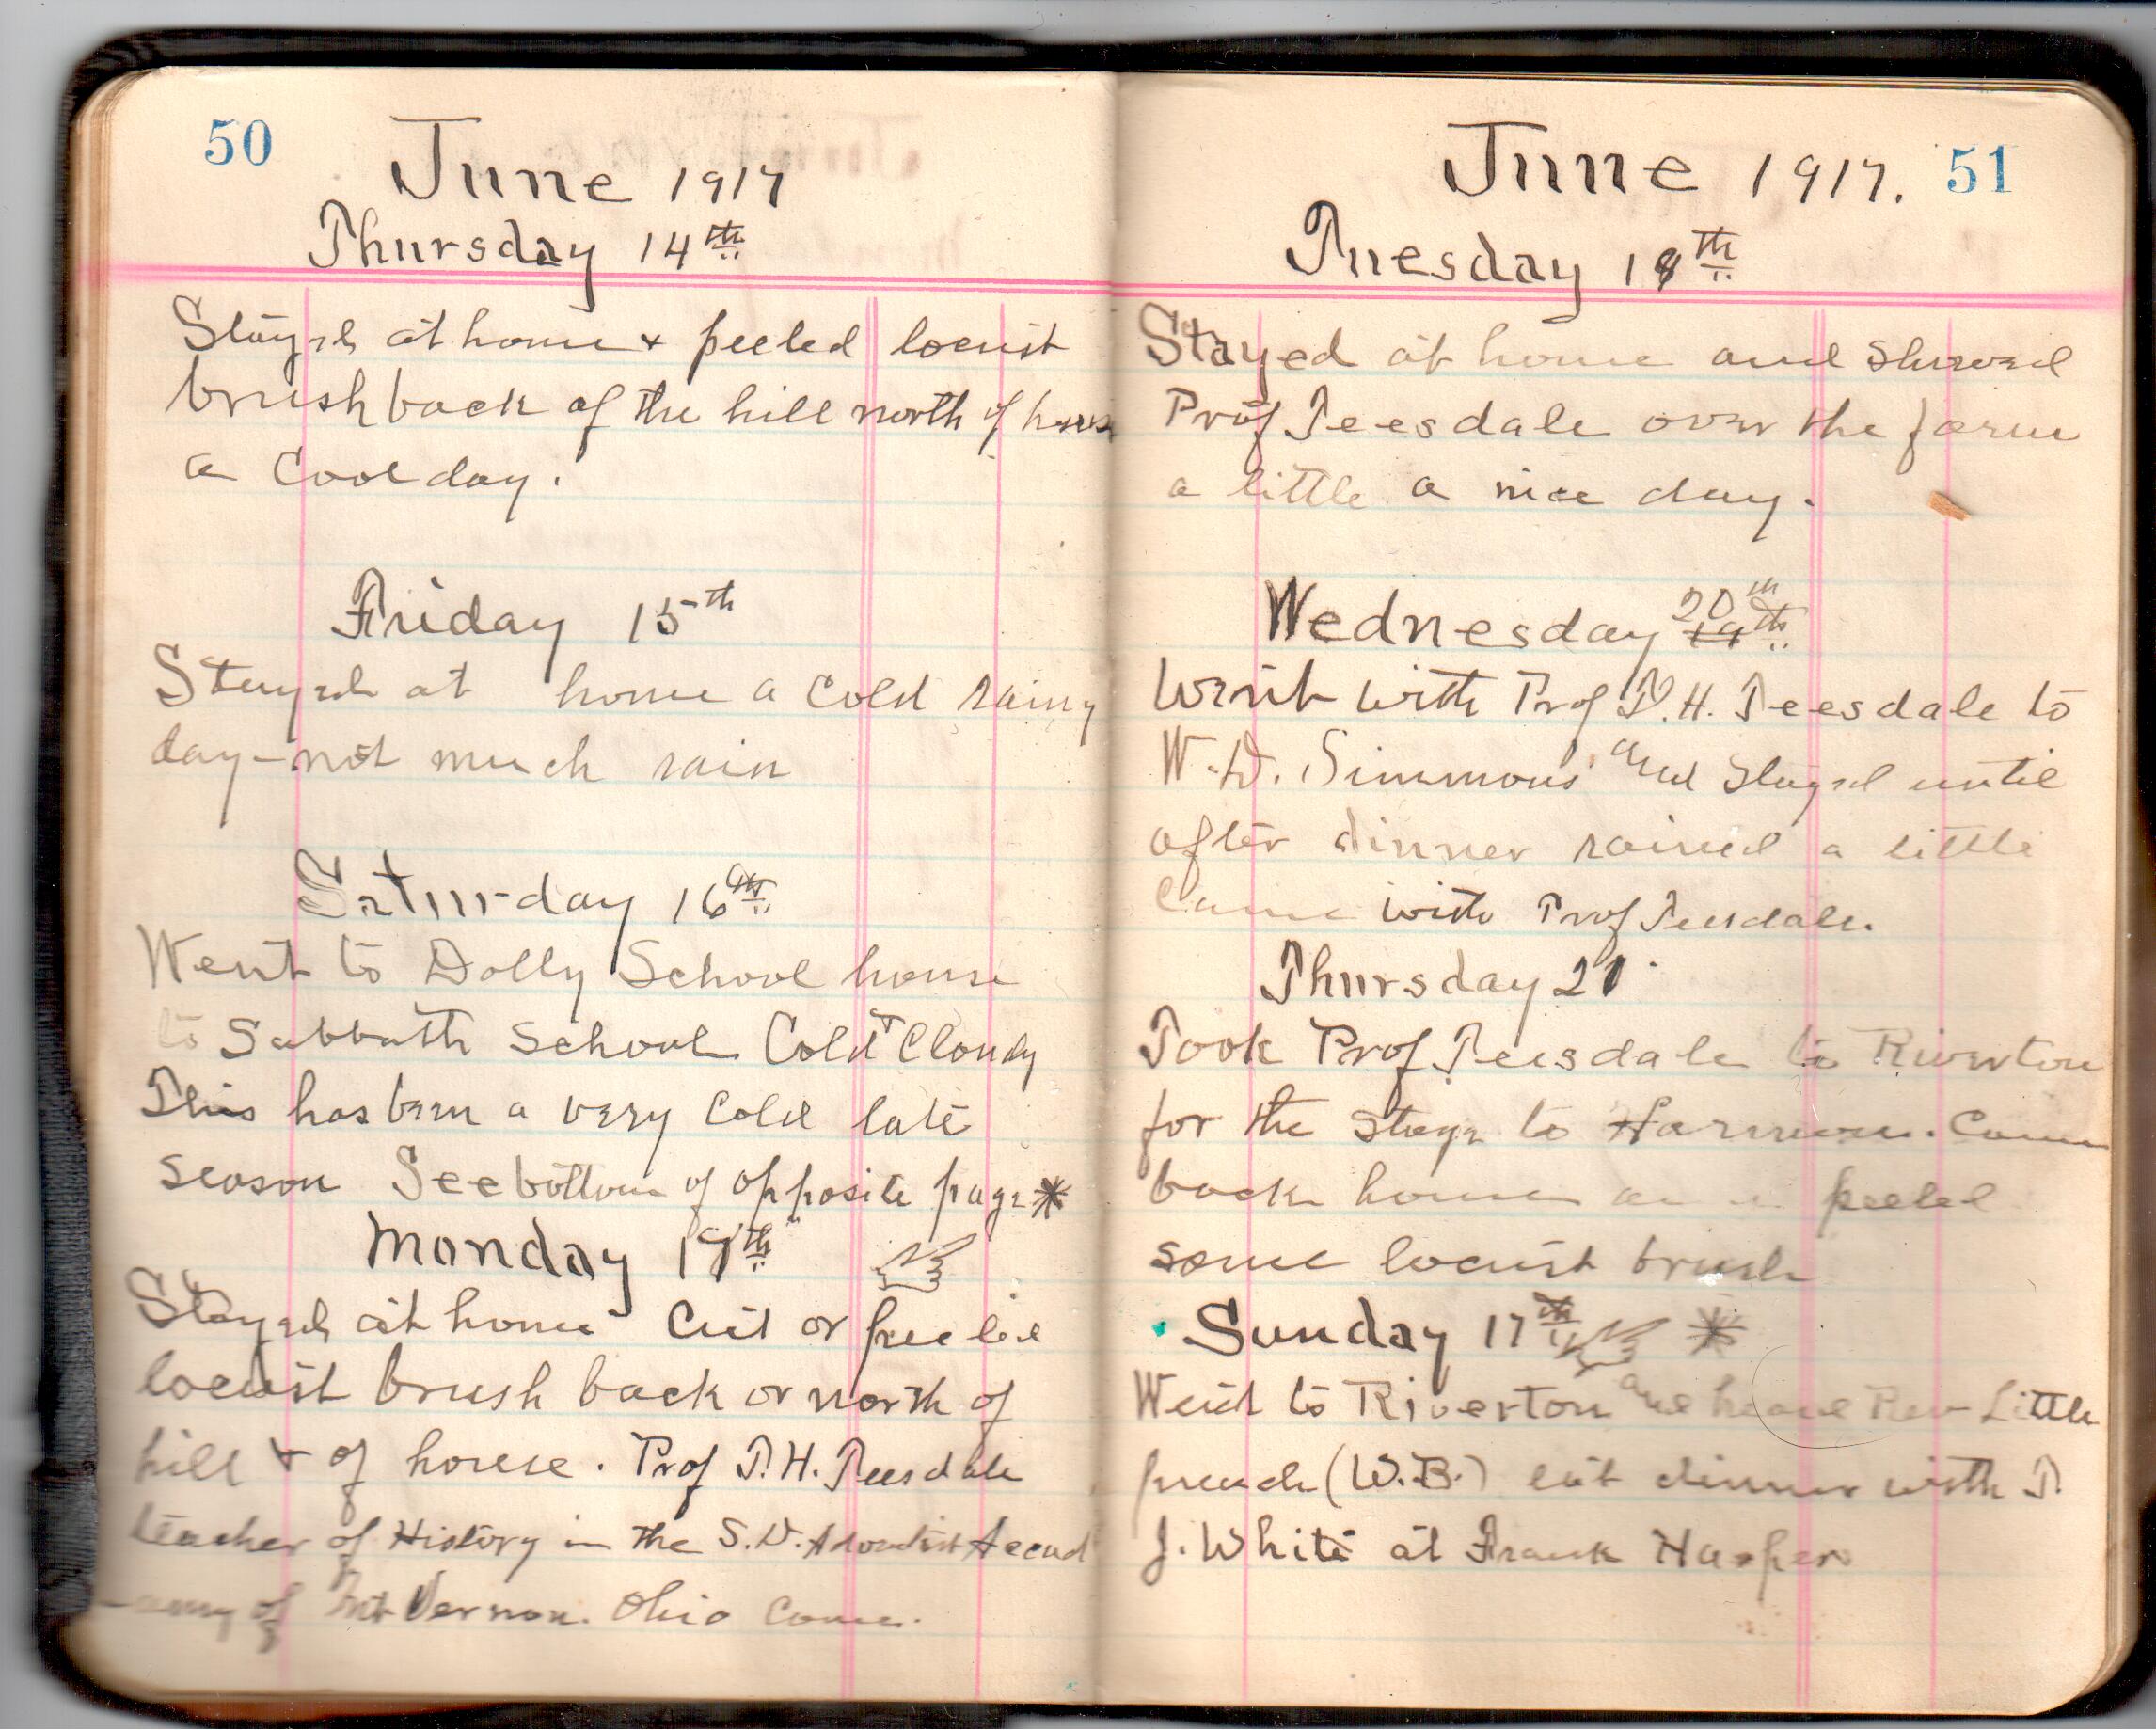 50
June 1917
Thursday 14th
Stayed at home & peeled locust
brush back of the hill north of house
a Cool day.
Friday 15th
Stayed at home a Cold rainy
day - not much rain
Saturday 16th
Went to Dolly School house
to Sabbath School Cold & Cloudy
This has been a very Cold late
season See bottom of opposite page *
Monday 18th
Stayed at home Cut or peeled
locust brush back or north of
hill & of house. Prof T. H. Teesdale
teacher of History in the S. D. Adventist Acad
-emy of Mt Vernon. Ohio Came.
June 1917. 51
Tuesday 19th
Stayed at home and showed
Prof Teesdale over the farm
a little a nice day.
Wednesday 19th 20th
Went with Prof T. H. Teesdale to
W. D. Simmons' and Stayed until
after dinner rained a little
Came with Prof Teesdale.
Thursday 21
Took Prof Teesdale to Riverton
for the Stage to Harman. Came
back home peeled
some locust brush
Sunday 17th *
Went to Riverton and heard Rev Little
preach (W.B.) eat dinner with T.
J. White at Frank Harpers